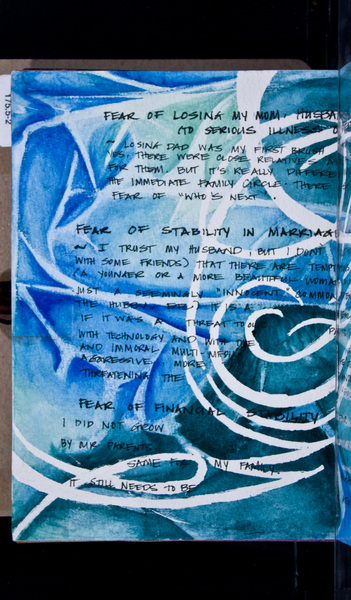 175.5-2
FEAR OF LOSING MY MOM, HUSBA
(TO SERIOUS ILLNESS O
~ LOSING DAD WAS MY FIRST BRUSH
THERE WERE CLOSE RELATIVES
FOR THEM. BUT IT'S REALLY DIFFERE
THE IMMEDIATE FAMILY CIRCLE. THERE
FEAR OF "WHO'S NEXT"
FEAR OF STABILITY IN MARRIAGE
~ I TRUST MY HUSBAND, BUT I DON'T
WITH SOME FRIENDS) THAT THERE ARE TEMP
(A YOUNGER OR A MORE BEAUTIFUL WOMAN
JUST A SEEMINGLY "INNOCENT" COMMON
THE HUSBAND IS A
IF IT WAS A THREAT TO OU
WITH TECHNOLOGY AND WITH THE
AND IMMORAL MULTI-MEDIA
AGGRESSIVE, MORE
THREATENING THE
FEAR OF FINANCIAL STABILITY
I DID NOT GROW
BY MR PARENTS
SAME FOR MY FAMILY.
IT STILL NEEDS TO BE